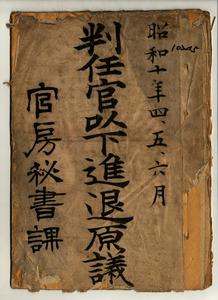 昭和十年四、五、六月
判任官以下進退原議
官房秘書課